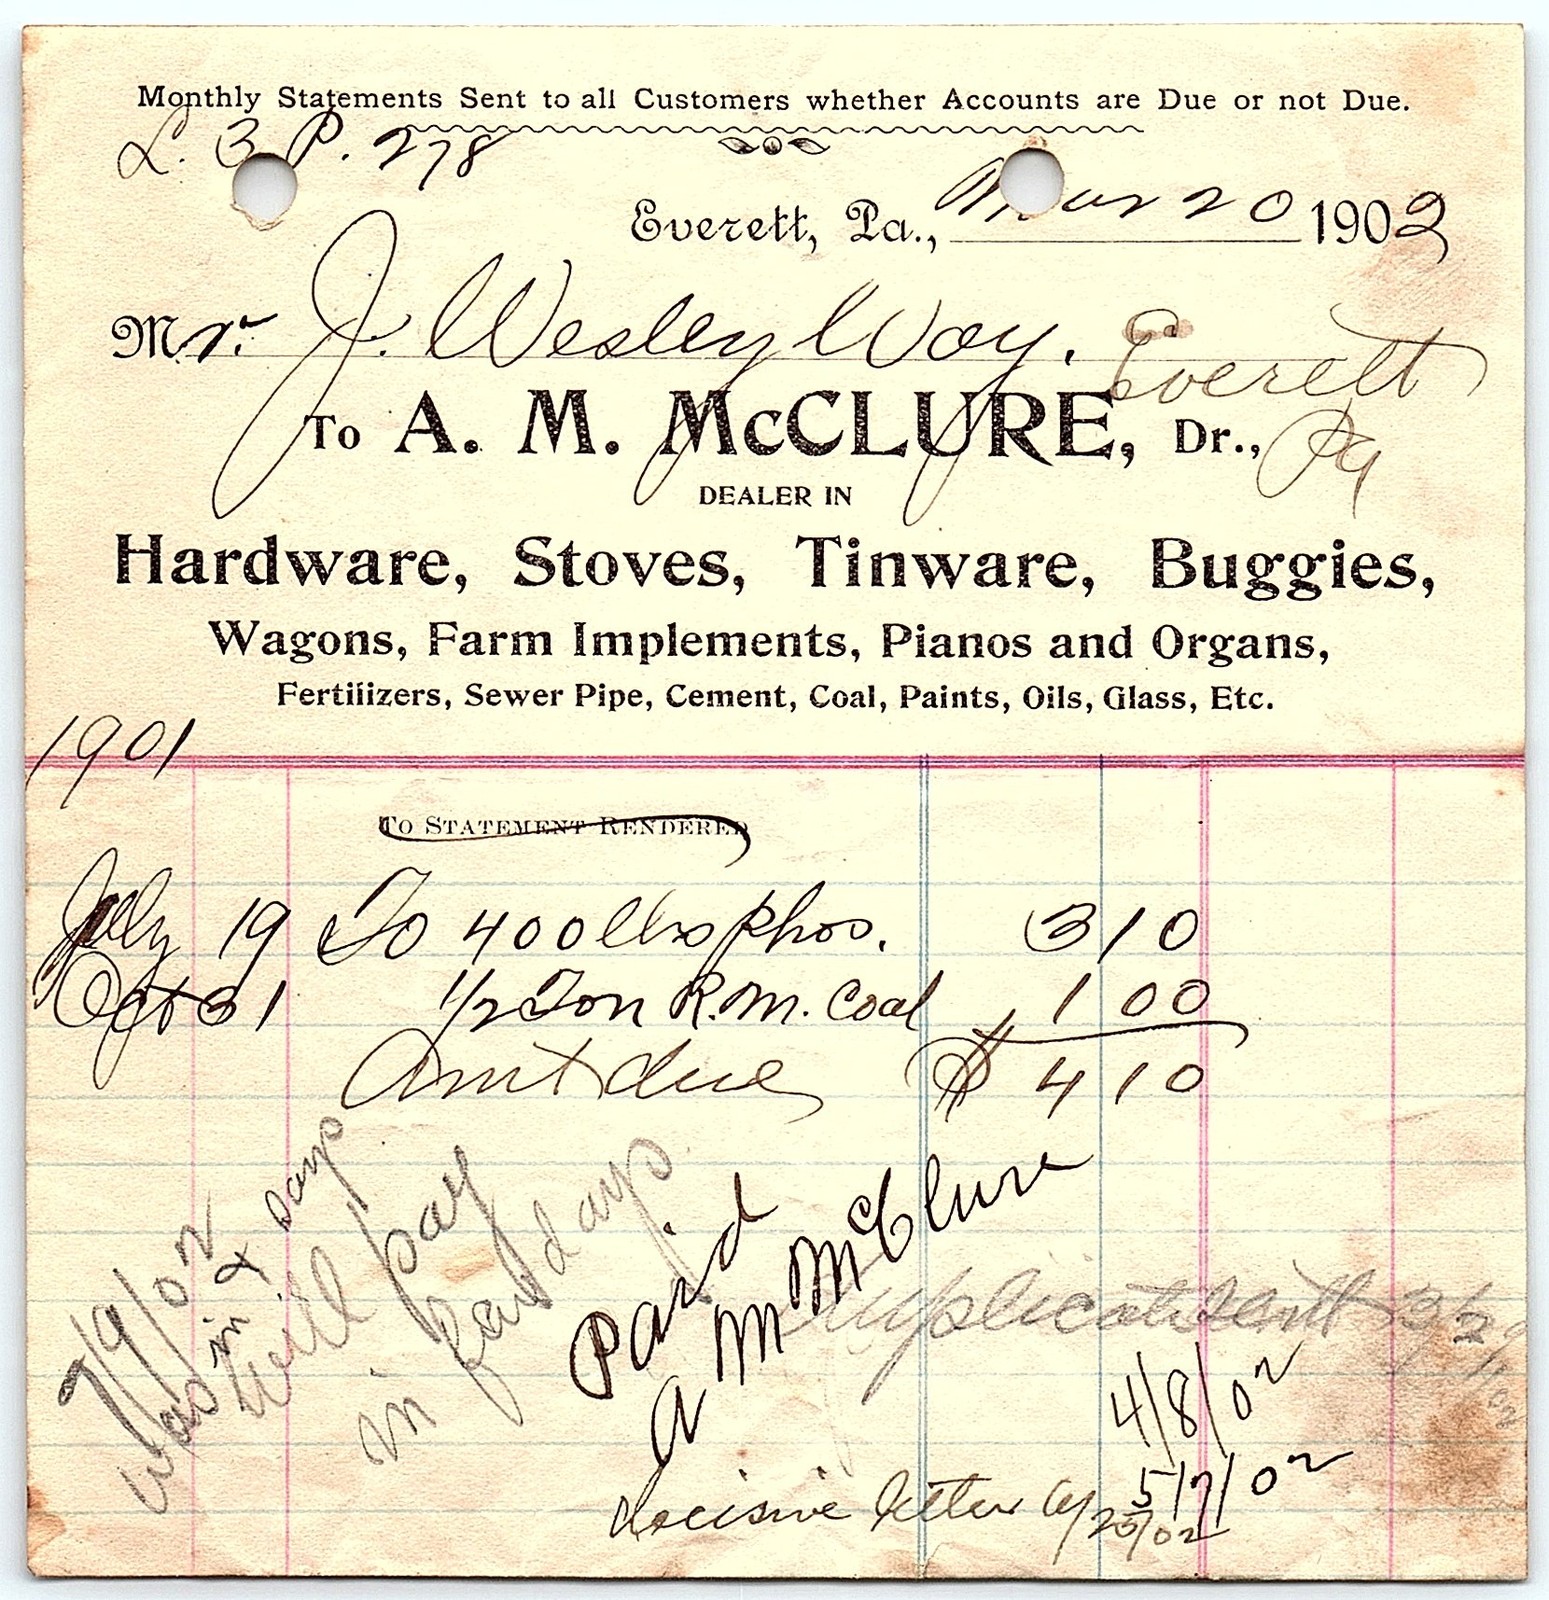 Monthly Statements Sent to all Customers whether Accounts are Due or not Due.
L. B. P. 278
Everett, Pa., Mar 20 1902
Mr. J. Wesley Way. Everett
To A. M. McCLURE, Dr., Pa
DEALER IN
Hardware, Stoves, Tinware, Buggies,
Wagons, Farm Implements, Pianos and Organs,
Fertilizers, Sewer Pipe, Cement, Coal, Paints, Oils, Glass, Etc.
1901
To Statement Rendered
July 19 To 400 lbs phos. 3 10
Oct 31 1/2 Ton R. M. Coal 1 00
Amt due $ 4 10
7/9/02
was in & says
will pay
in few days
Paid
A M McClure
Duplicate sent 3/29/02
4/8/02
5/7/02
decisive letter